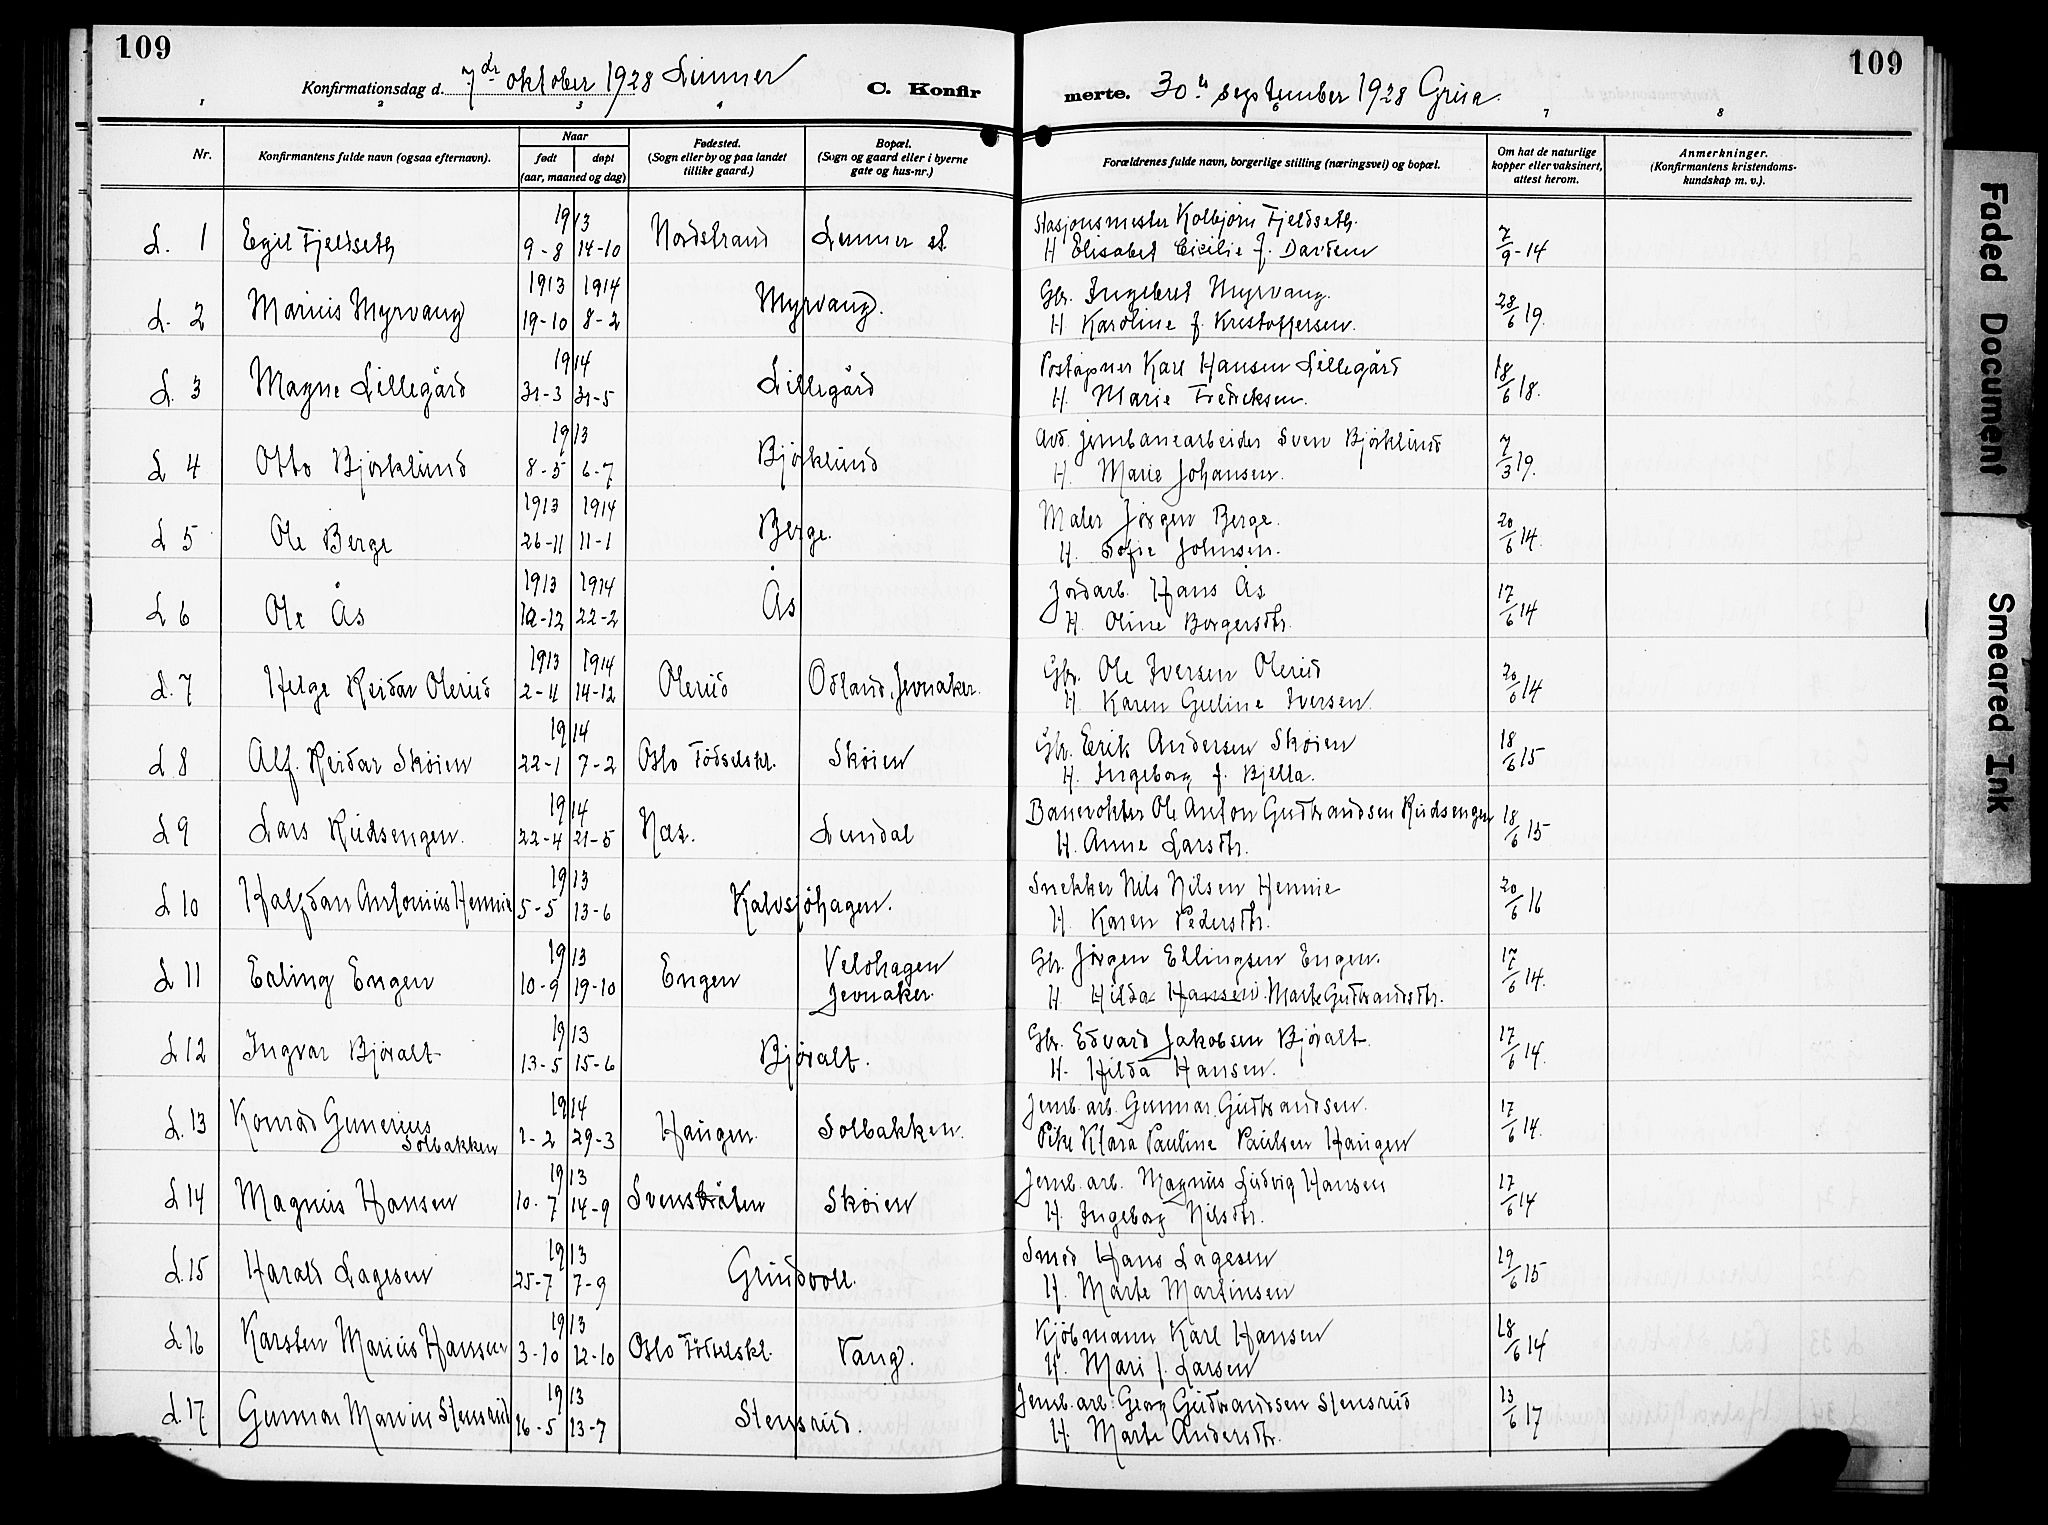 109
Konfirmationsdag d. 7de oktober 1928 Lunner C. Konfirmerte. 30te september 1928 Grua.
109
1 2 3 4 7 8
Nr. Konfirmantens fulde navn (ogsaa efternavn). Naar født døpt (aar, maaned og dag) Fødested. (Sogn eller by og paa landet tillike gaard.) Bopæl. (Sogn og gaard eller i byerne gate og hus-nr.) Forældrenes fulde navn, borgerlige stilling (næringsvei) og bopæl. Om hat de naturlige kopper eller vaksinert, attest herom. Anmerkninger. (Konfirmantens kristendomskundskap m. v.).
L. 1 Egil Fjeldseth 1913 9-8 14-10 Nordstrand Lunner st. Stasjonsmester Kolbjørn Fjeldseth.
H Elisabet Cicilie f. Davidsen 7/9-14
L. 2 Marius Myrvang 1913 1914 19-10 8-2 Myrvang. Gbr. Ingebret Myrvang.
H. Karoline f. Kristoffersen. 28/6 19.
L. 3 Magne Lillegård 1914 31-3 31-5 Lillegård Poståpner Karl Hansen Lillegård
H. Marie Fredricksen. 18/6 18.
L 4 Otto Bjørklund 1913 8-5 6-7 Bjørklund Avd. jernbanearbeider Sven Bjørklund
H. Marie Johansen. 7/3 19.
L 5 Ole Berge 1913 1914 26-11 11-1 Berge. Maler Jørgen Berge.
H. Sofie Johnsen. 20/6 14.
L 6 Ole Ås 1913 1914 12-12 22-2 Ås Jordarb. Hans Ås
H. Oline Borgersdtr. 17/6 14
L. 7 Helge Reidar Olerud 1913 1914 2-11 14-12 Olerud Odland, Jevnaker. Gbr. Ole Iversen Olerud
H. Karen Guline Iversen. 20/6 14
L 8 Alf Reidar Skøien 1914 22-1 7-2 Oslo Fødselskl. Skøien Gbr. Erik Andersen Skøien
H. Ingeborg f. Bjella. 18/6 15
L 9 Lars Rudsengen. 1914 22-4 21-5 Næs. Lundal Banevokter Ole Anton Gudbrandsen Rudsengen
H. Anne Larsdtr. 18/6 15
L 10 Halfdan Antonius Hennie 1913 5-5 13-6 Kalvsjøhagen. Snekker Nils Nilsen Hennie
H. Karen Pedersdtr. 20/6 16
L 11 Erling Engen 1913 10-9 19-10 Engen Velohagen Jevnaker. Gbr. Jørgen Ellingsen Engen.
H. Hilda Hansen. Marte Gudbrandsdtr. 17/6 14.
L 12 Ingvar Bjøralt 1913 13-5 15-6 Bjøralt. Gbr. Edvard Jakobsen Bjøralt.
H. Hilda Hansen. 17/6 14.
L. 13 Konrad Gunerius Solbakken 1914 1-2 29-3 Haugen. Solbakken. Jernb. arb. Gunnar Gudbrandsen.
Pike Klara Pauline Paulsen Haugen 17/6 14.
L 14 Magnus Hansen 1913 10-7 14-9 Svensbråten Skøien Jernb. arb. Magnus Ludvig Hansen
H. Ingeborg Nilsdtr. 17/6 14
L. 15 Harald Lagesen 1913 25-7 7-9 Grindvoll. Smed Hans Lagesen
H. Marte Martinsen 19/6 15
L 16 Karsten Marius Hansen 1913 3-10 12-10 Oslo Fødselskl. Vang. Kjøbmann Karl Hansen
H. Mari f. Larsen 18/6 14
L. 17 Gunnar Marius Stensrud 1913 16-5 13-7 Stensrud. Jernb. arb. Georg Gudbrandsen Stensrud
H. Marte Andersdtr. 13/6 17
Faded Document
Smeared Ink